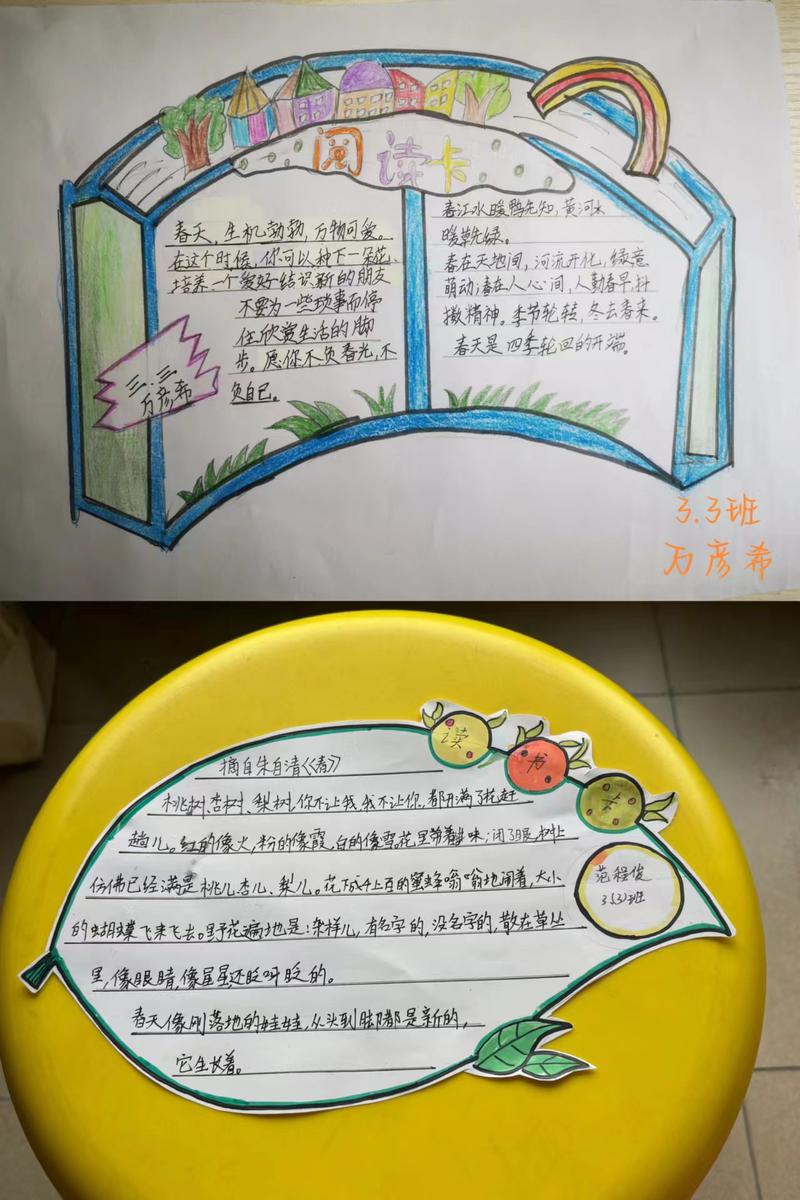 阅读卡
春天，生机勃勃，万物可爱。
在这个时候，你可以种下一朵花、
培养一个爱好、结识新的朋友
不要为一些琐事而停
住欣赏生活的脚
步。愿你不负春光，不
负自己。
三.三
万彦希
春江水暖鸭先知，黄河水
暖草先绿。
春在天地间，河流开化，绿意
萌动；春在人心间，人勤春早，抖
擞精神。季节轮转，冬去春来。
春天是四季轮回的开端。
3.3班
万彦希
读书卡
摘自朱自清《春》
桃树、杏树、梨树，你不让我，我不让你，都开满了花赶
趟儿。红的像火，粉的像霞，白的像雪。花里带着甜味；闭了眼，树上
仿佛已经满是桃儿、杏儿、梨儿。花下成千上百的蜜蜂嗡嗡地闹着，大小
的蝴蝶飞来飞去。野花遍地是：杂样儿，有名字的，没名字的，散在草丛
里，像眼睛，像星星，还眨呀眨的。
春天像刚落地的娃娃，从头到脚都是新的，
它生长着。
范程俊
3(3)班